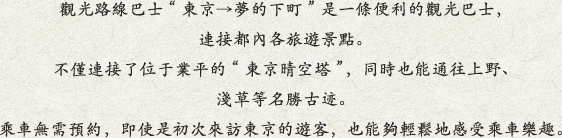 觀光路線巴士“東京→夢的下町”是一條便利的觀光巴士，
連接都內各旅遊景點。
不僅連接了位于業平的“東京晴空塔”，同時也能通往上野、
淺草等名勝古迹。
乘車無需預約，即使是初次來訪東京的遊客，也能夠輕鬆地感受乘車樂趣。